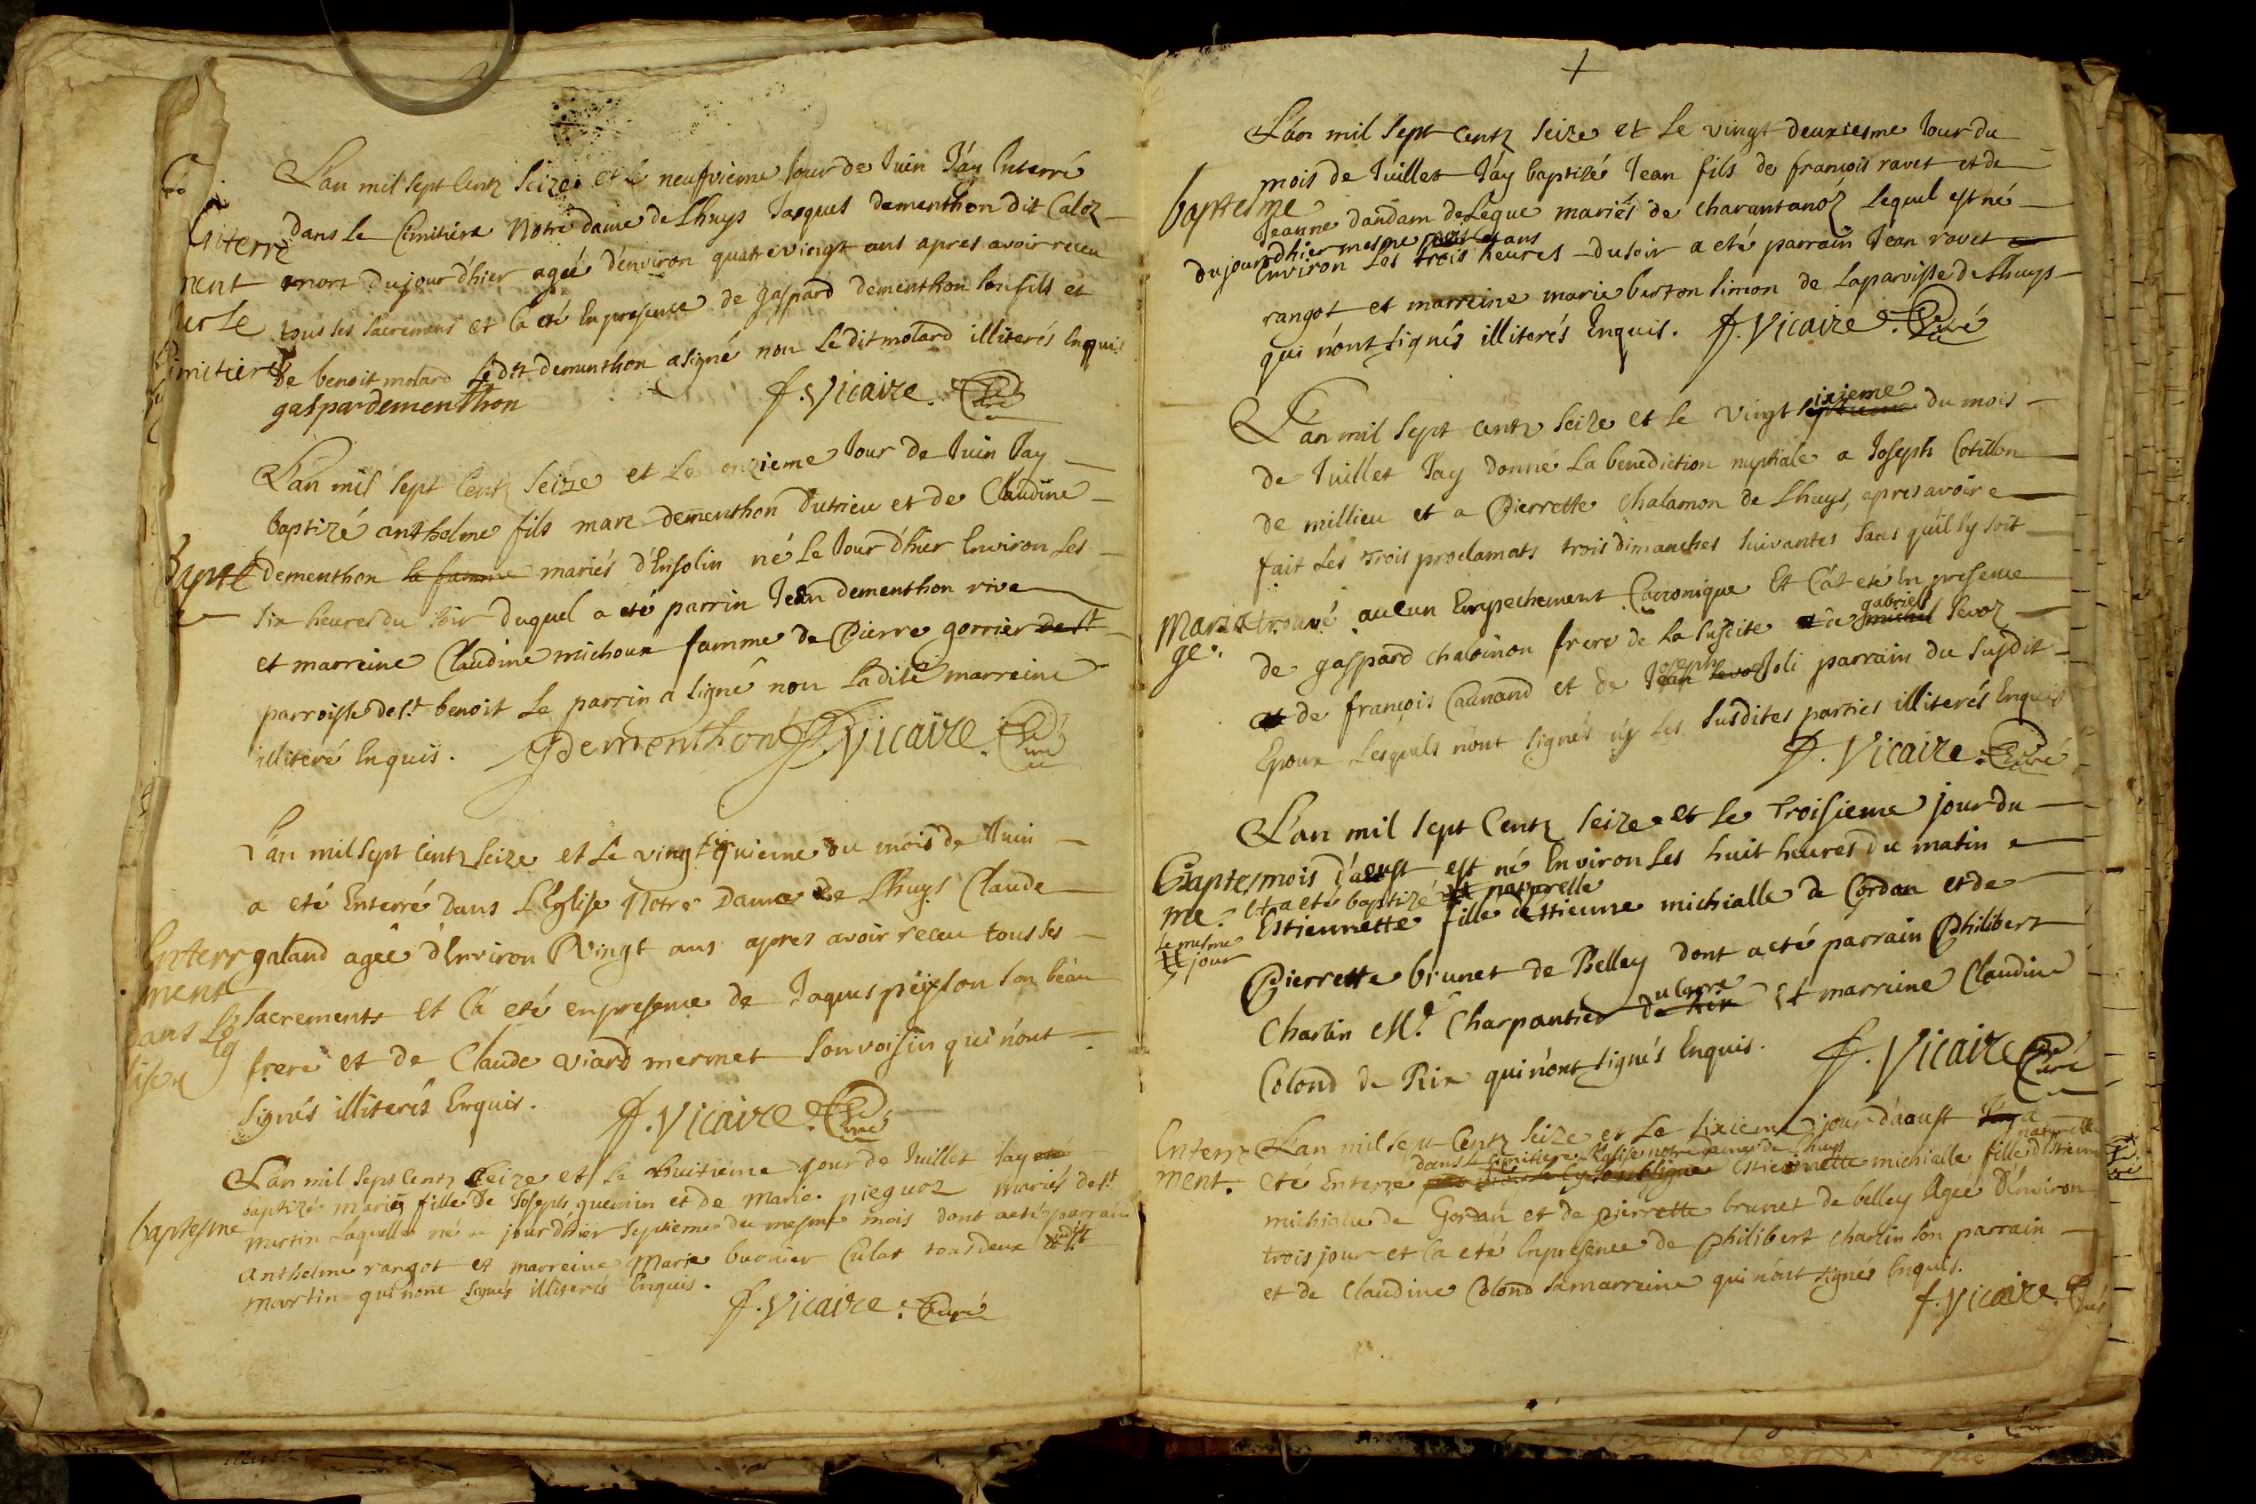 L'an mil sept Centz Seize et le neufvieme Jour de Juin J'áy Enterré
dans le Cimitiére Notre dame de Lhuys Jacques dementhon dit Caloz
mort du jour d'hier ageé d'environ quatrevingt ans apres avoir receu
tous les sacremens et la eté En presence de gaspard dementhon son fils et
de benoit molard Ledit dementhon a signé non Le dit molard illiterés Enquis
gaspardementhon f. Vicaire. Curé
L'an mil sept Centz Seize et Le onzieme Jour de Juin Jay
Baptizé anthelme fils marc dementhon dutrieu et de Claudine
dementhon la famme mariés d'Ensolin né Le Jour d'hier Environ Les
six heures du soir duquel a eté parrin Jean dementhon rive
et marreine Claudine michoux famme de Pierre gorrier de st
parroisse de st benoit Le parrin a signé non La dite marreine
illiteré Enquis. Dementhon f. Vicaire. Curé
L'an mil sept Centz Seize et Le vingt du mois de Juin
a eté Enterré Dans L'Eglise Notre Dame De Lhuys Claude
Enterr galand agée d'Environ vingt ans apres avoir receu tous ses
ment
dans Lég
lise
sacrements et la eté en presence de Jaques peysson son beau
frere et de Claude viard mermet son voisin qui nónt
signés illiterés Enquis. f. Vicaire. Curé
L'an mil sept Centz Seize et Le huitiéme jour de Juillet Jay eté
baptizé marie fille De Joseph guemin et de Marie pieguoz mariés de st
baptesme martin Laquelle né jour d'hier septieme du mesme mois dont a eté parrain
anthelme rangot et marreine Marie burnier Culat tous deux dudit
martin qui nont signés illiterés Enquis.
f. Vicaire. Curé
L'án mil sept Centz Seize et le vingt deuxiesme Jour du
mois de Juillet J'áy baptizé Jean fils de françois ravet et de
baptesme
Jeanne dandam de Leque mariés de charantanóz Lequel est né
du jour d'hier mesme
Environ les trois heures du soir a eté parrain Jean ravet
rangot et marreine marie berton simon de La parroisse de Lhuys
qui nónt signés illiterés Enquis. f. Vicaire. Curé
L'an mil sept centz seize et le vingt sixieme du mois
de Juillet Jay donné La benediction nuptiale a Joseph Cotillon
de millieu et a Pierrette Chalamon de Lhuys, apres avoir
fait Les trois proclamats trois dimanches suivantes sans quil sy soit
Maria trouvé aucun Empechement Canonique Et l'at eté En presence
ge.
de gaspard chalomon frere de La susdite de gabriel michel sevoz
et de françois Caunand et de Joseph Joli parrain du susdit
Epoux Lesquels nónt signés ny Les susdites parties illiterés Enquis
f. Vicaire. Curé
L'an mil sept Centz Seize et Le Troisieme jour du
Baptes mois d'áoust est né Environ Les huit heures du matin e
me. et a eté baptizé naturelle
le mesme jour
Estiennette fille destienne michialle de Cordon et de
Pierrette brunet de Belley dont a eté parrain Philibert
Charlin Me. Charpantier du Et marreine Claudine
Colond de Rix qui nónt signés Enquis. f. Vicaire Curé
Enterre L'an mil sept Centz Seize et Le sixieme jour d'áoust a
ment. eté Enterré dans Le Cimitiere Leglise notre dame de Lhuys Estiennette michialle fille naturelle d'Estienne
michialle de Gordan et de pierrette brunet de belley Agée D'environ
trois jour et la eté En presence de Philibert charlin son parrain
et de Claudine Colond sa marreine qui nónt signés Enquis.
f. Vicaire. Curé